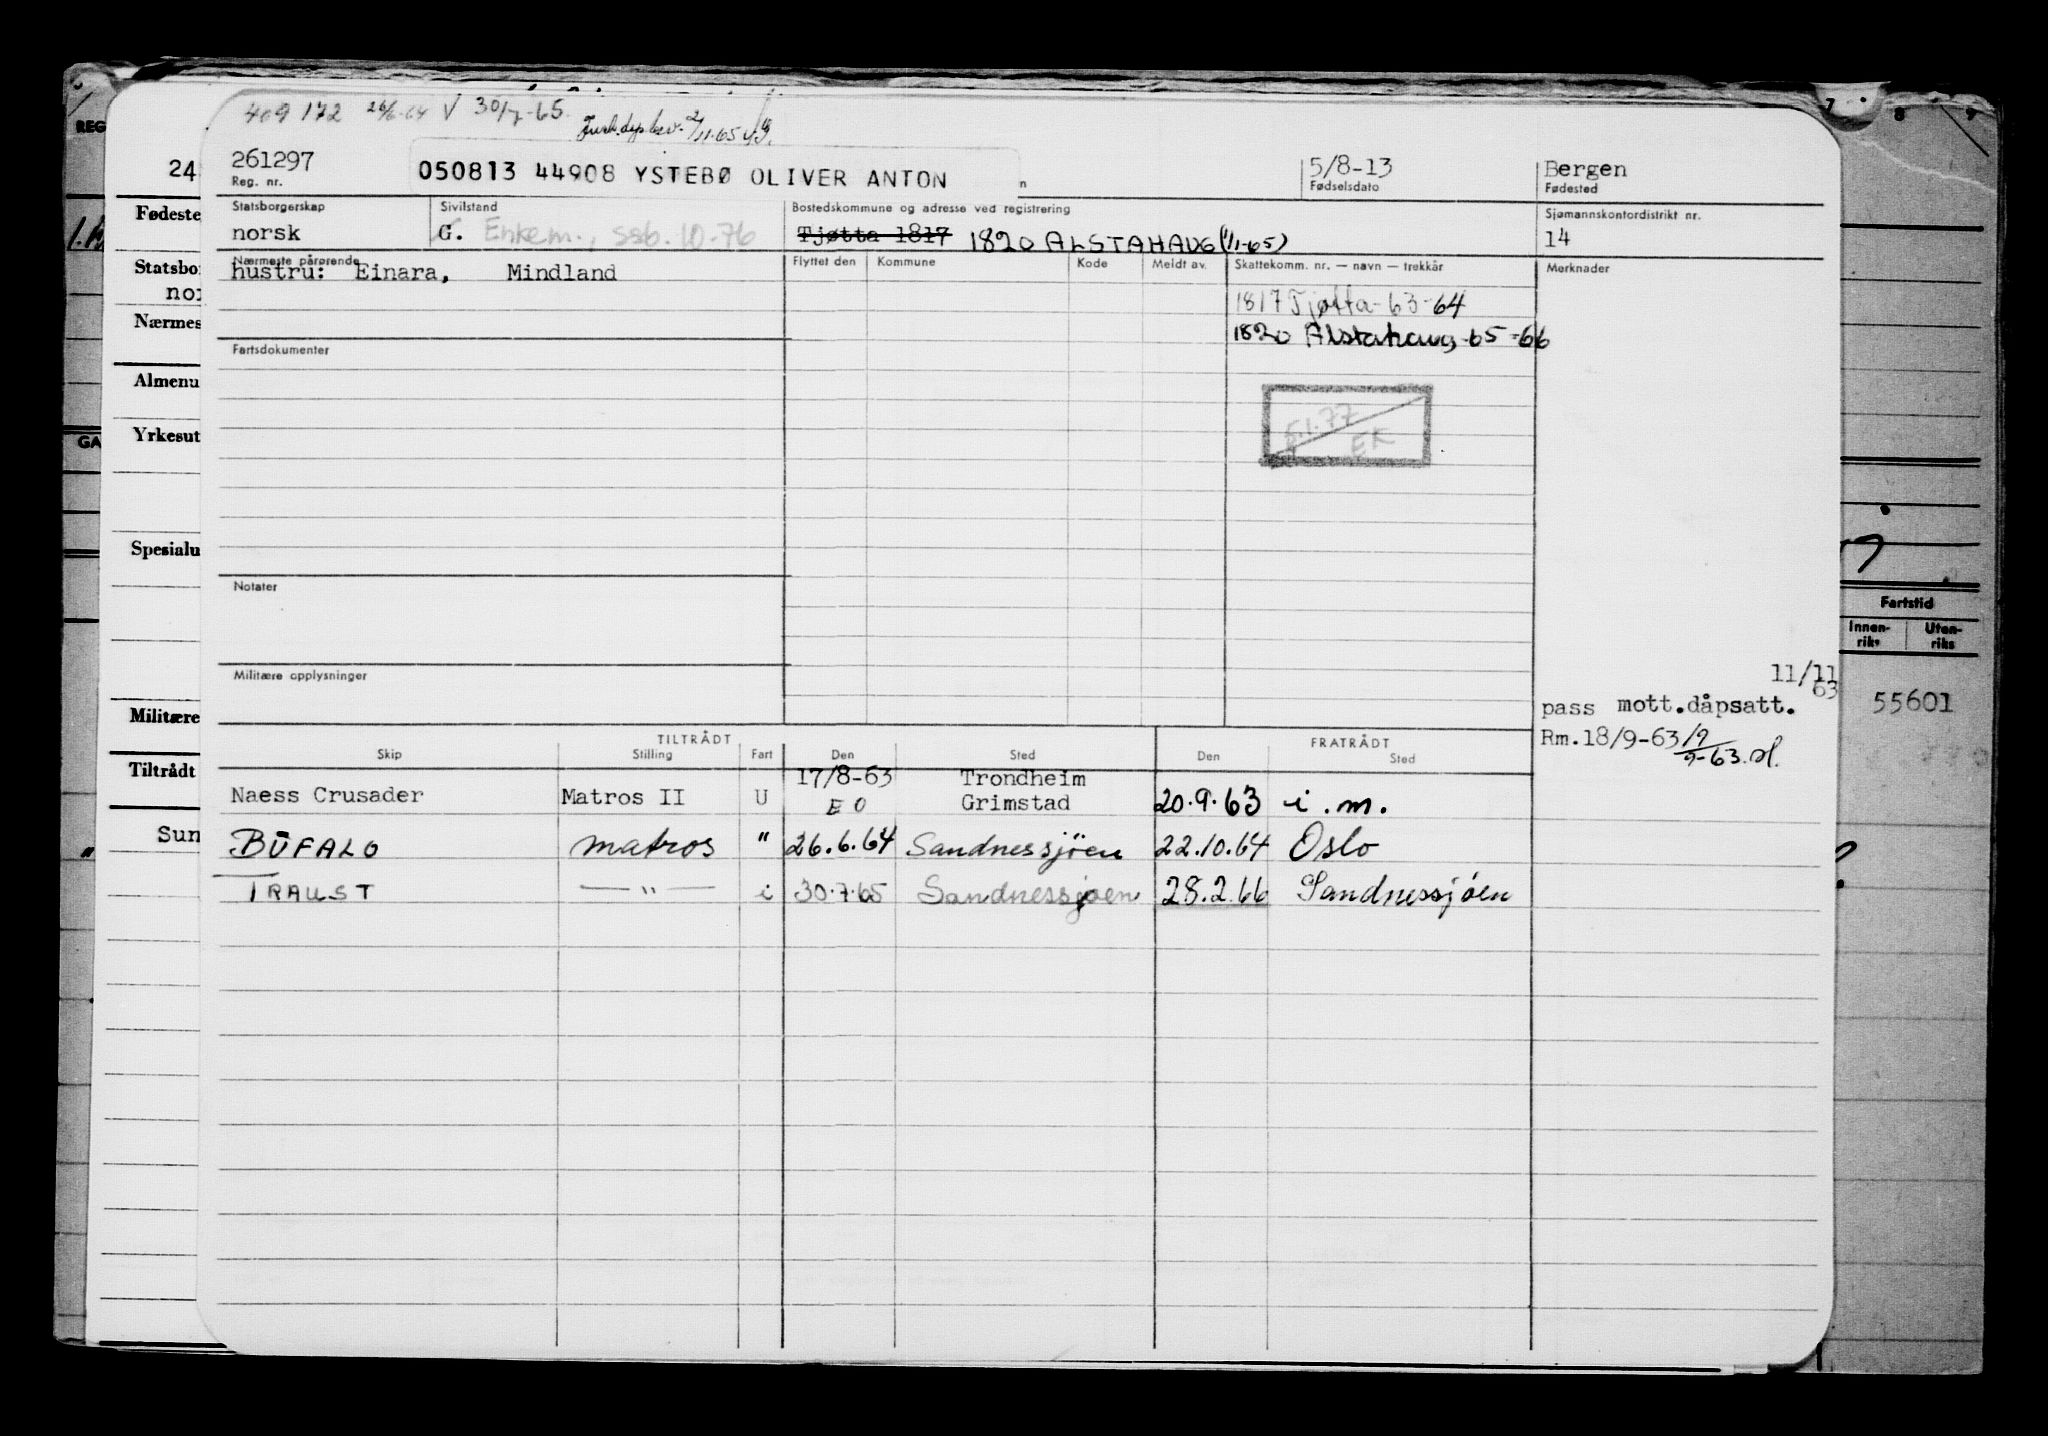 409 172 26/6-64 V 30/7-65.
2/11-65
261297
Reg. nr.
050813 44908 YSTEBØ OLIVER ANTON
n
5/8-13
Fødselsdato
Bergen
Fødested
Statsborgerskap
norsk
Sivilstand
G. Enkem., ssb. 10-76
Bostedskommune og adresse ved registrering
Tjøtta 1817 1820 ALSTAHAUG (1/1-65)
Sjømannskontordistrikt nr.
14
Nærmeste pårørende
hustru: Einara, Mindland
Flyttet den
Kommune
Kode
Meldt av.
Skattekomm. nr. — navn — trekkår
Merknader
1817 Tjøtta-63-64
1820 Alstahaug-65-66
Fartsdokumenter
5.1.77
EK
Notater
Militære opplysninger
11/11
63
pass mott.dåpsatt.
Rm.18/9-63 19/9-63.
TILTRÅDT
FRATRÅDT
Skip
Stilling
Fart
Den
Sted
Den
Sted
Naess Crusader Matros II U 17/8-63 EO Trondheim Grimstad 20.9.63 i.m.
BUFALO matros " 26.6.64 Sandnessjöen 22.10.64 Oslo
TRAUST — " — i 30.7.65 Sandnessjøen 28.2.66 Sandnessjöen
REG
24
Fødeste
Statsbo
nor
Nærmes
Almenu
GA
Yrkesut
Spesialu
Militære
Tiltrådt
Sun
7
8
9
Fartstid
Innen-
riks
Uten-
riks
55601